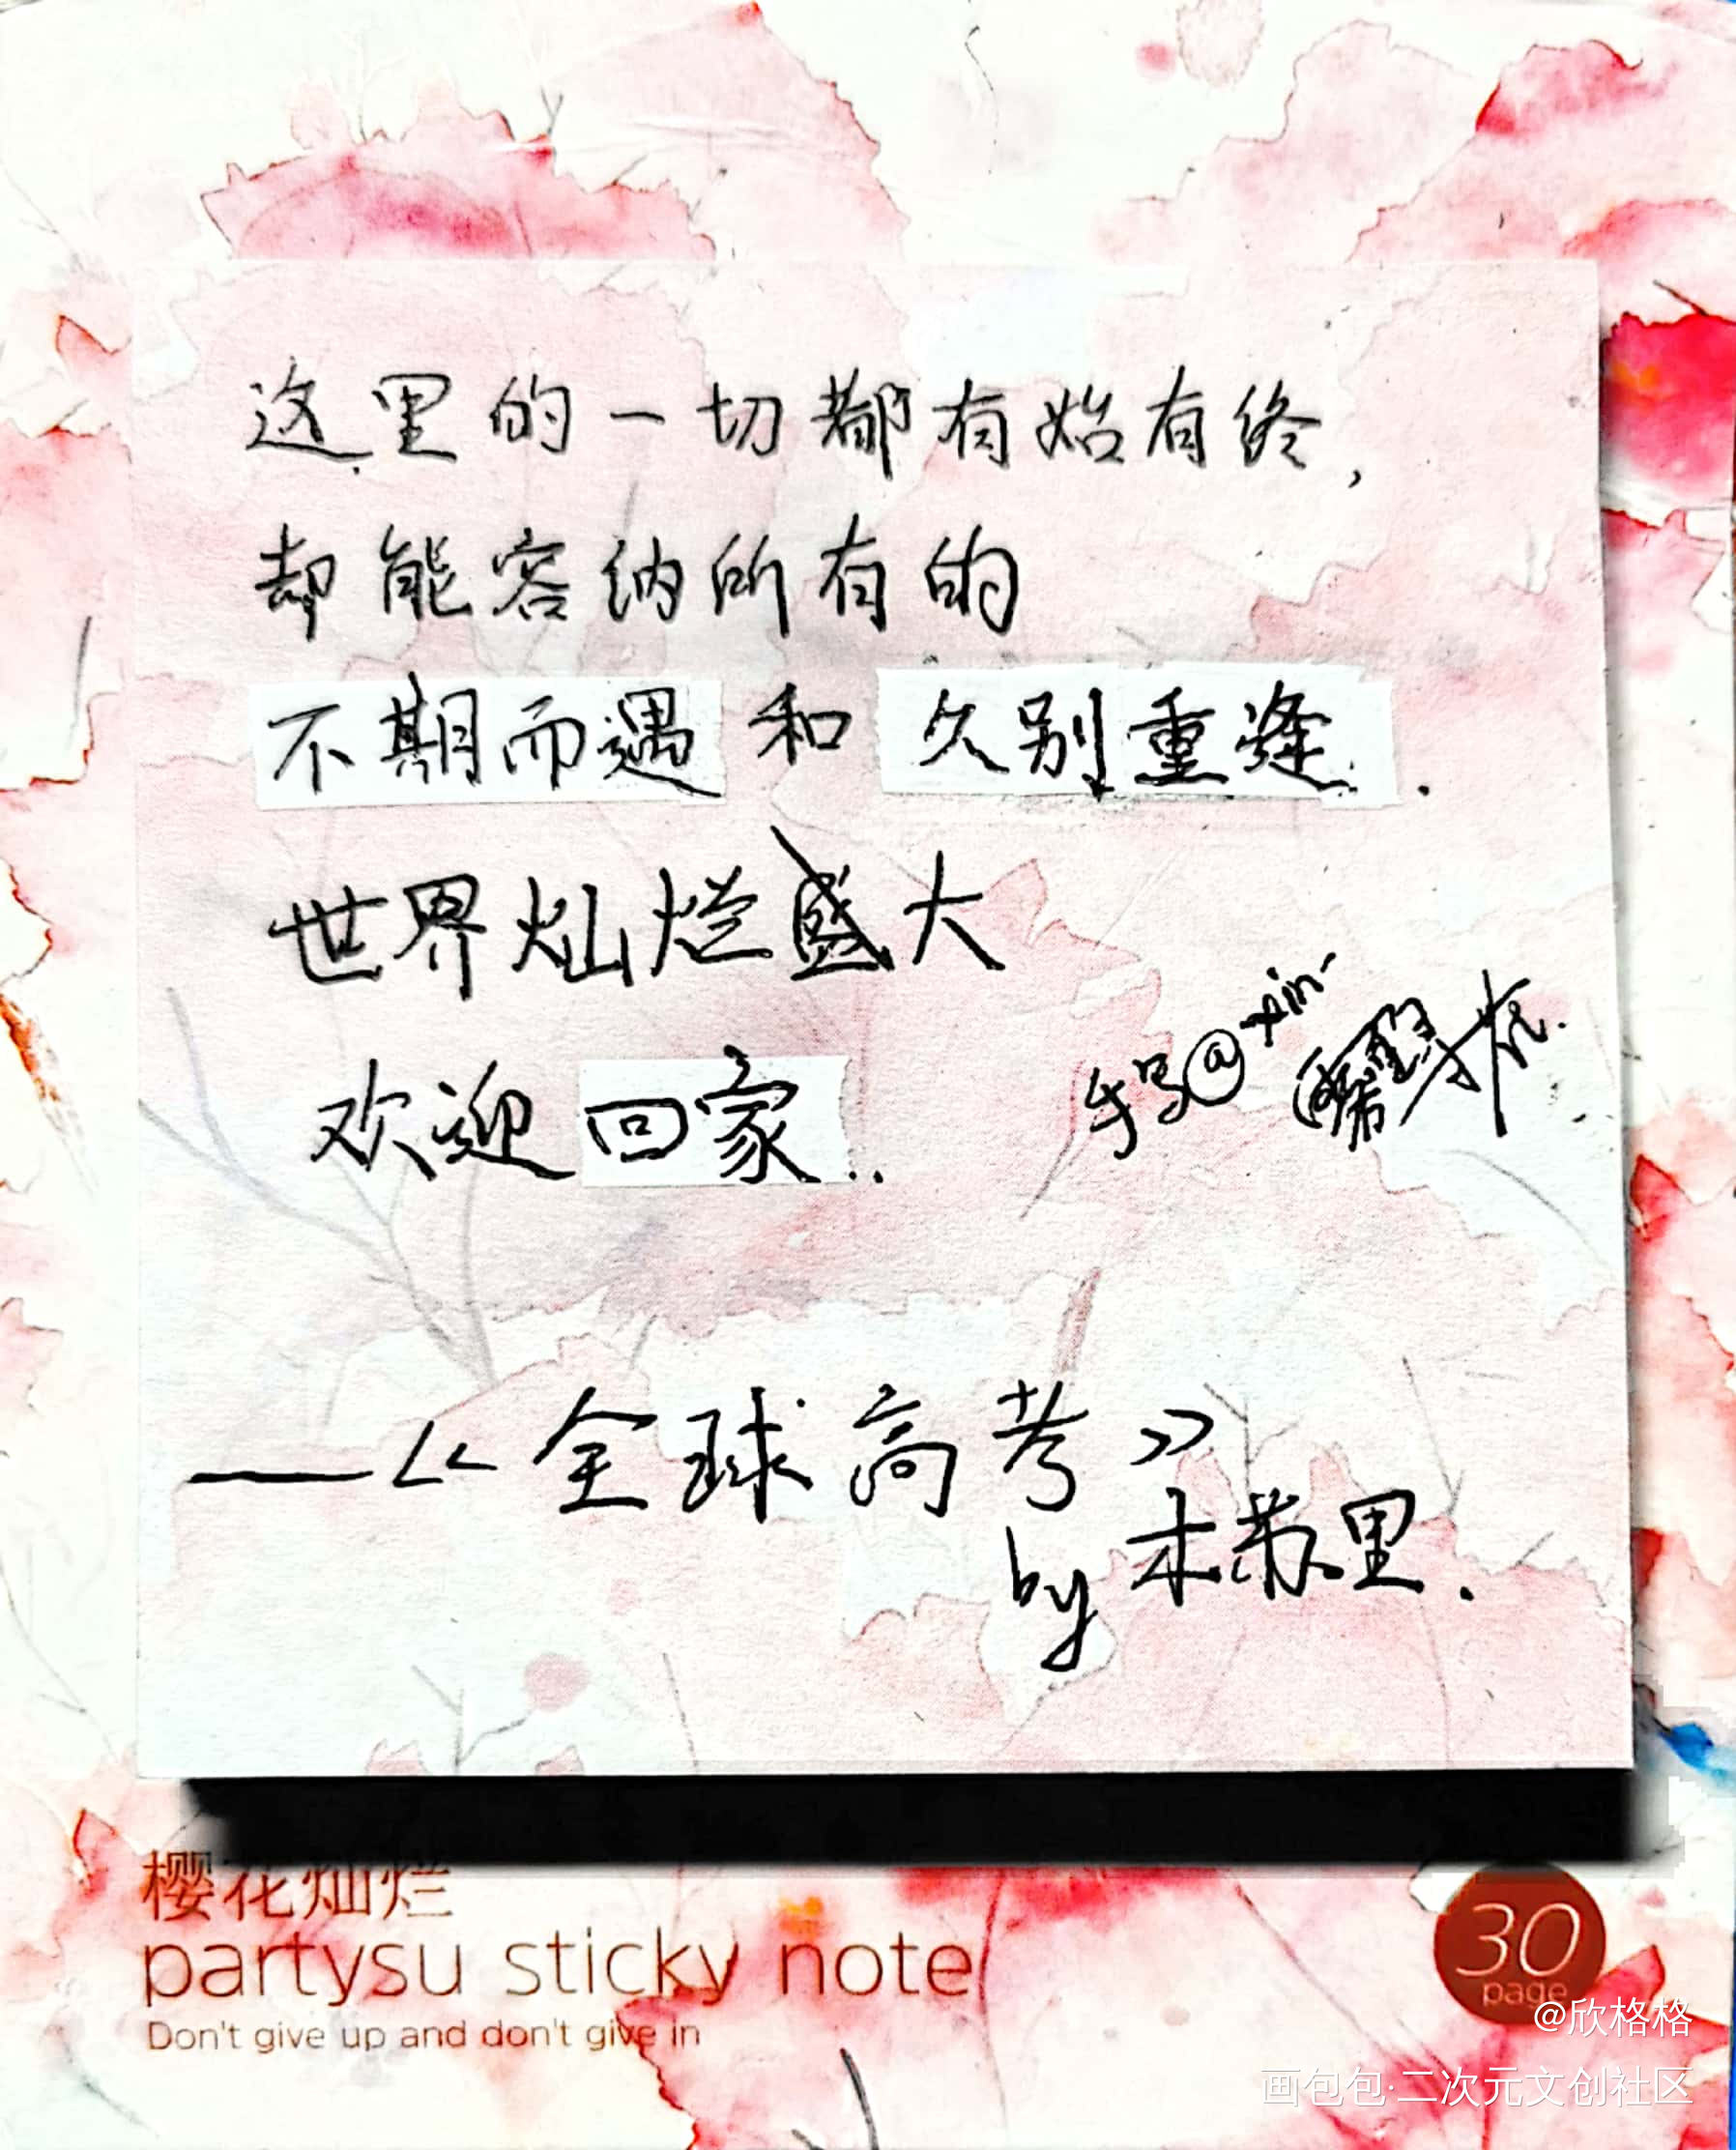 这里的一切都有始有终，
却能容纳所有的
不期而遇和久别重逢.
世界灿烂盛大
欢迎回家..
手写@xin-
——《全球高考》
by木苏里.
樱花灿烂
partysu sticky note
Don't give up and don't give in
30
page
@欣格格
画包包·二次元文创社区